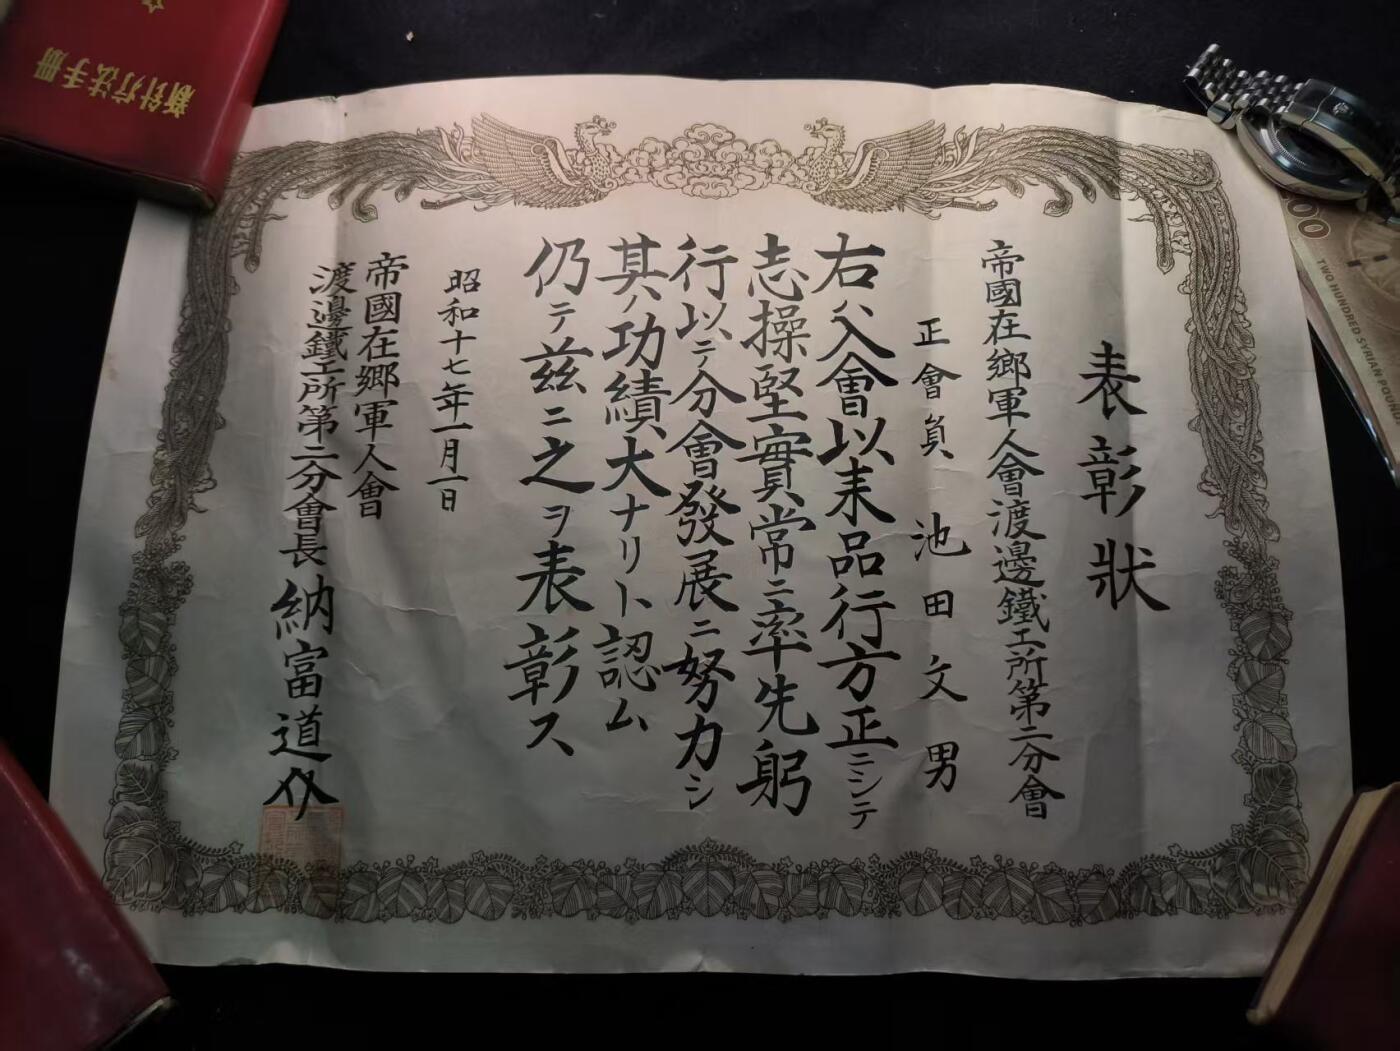 表彰狀
帝國在鄉軍人會渡邊鐵工所第二分會
正會員 池田文男
右ハ入會以来品行方正ニシテ
志操堅實常ニ率先躬
行以テ分會發展ニ努力シ
其ハ功績大ナリト認ム
仍テ茲ニ之ヲ表彰ス
昭和十七年一月一日
帝國在鄉軍人會
渡邊鐵工所第二分會長 納富道
新针疗法手册
200
TWO HUNDRED SYRIAN POUN